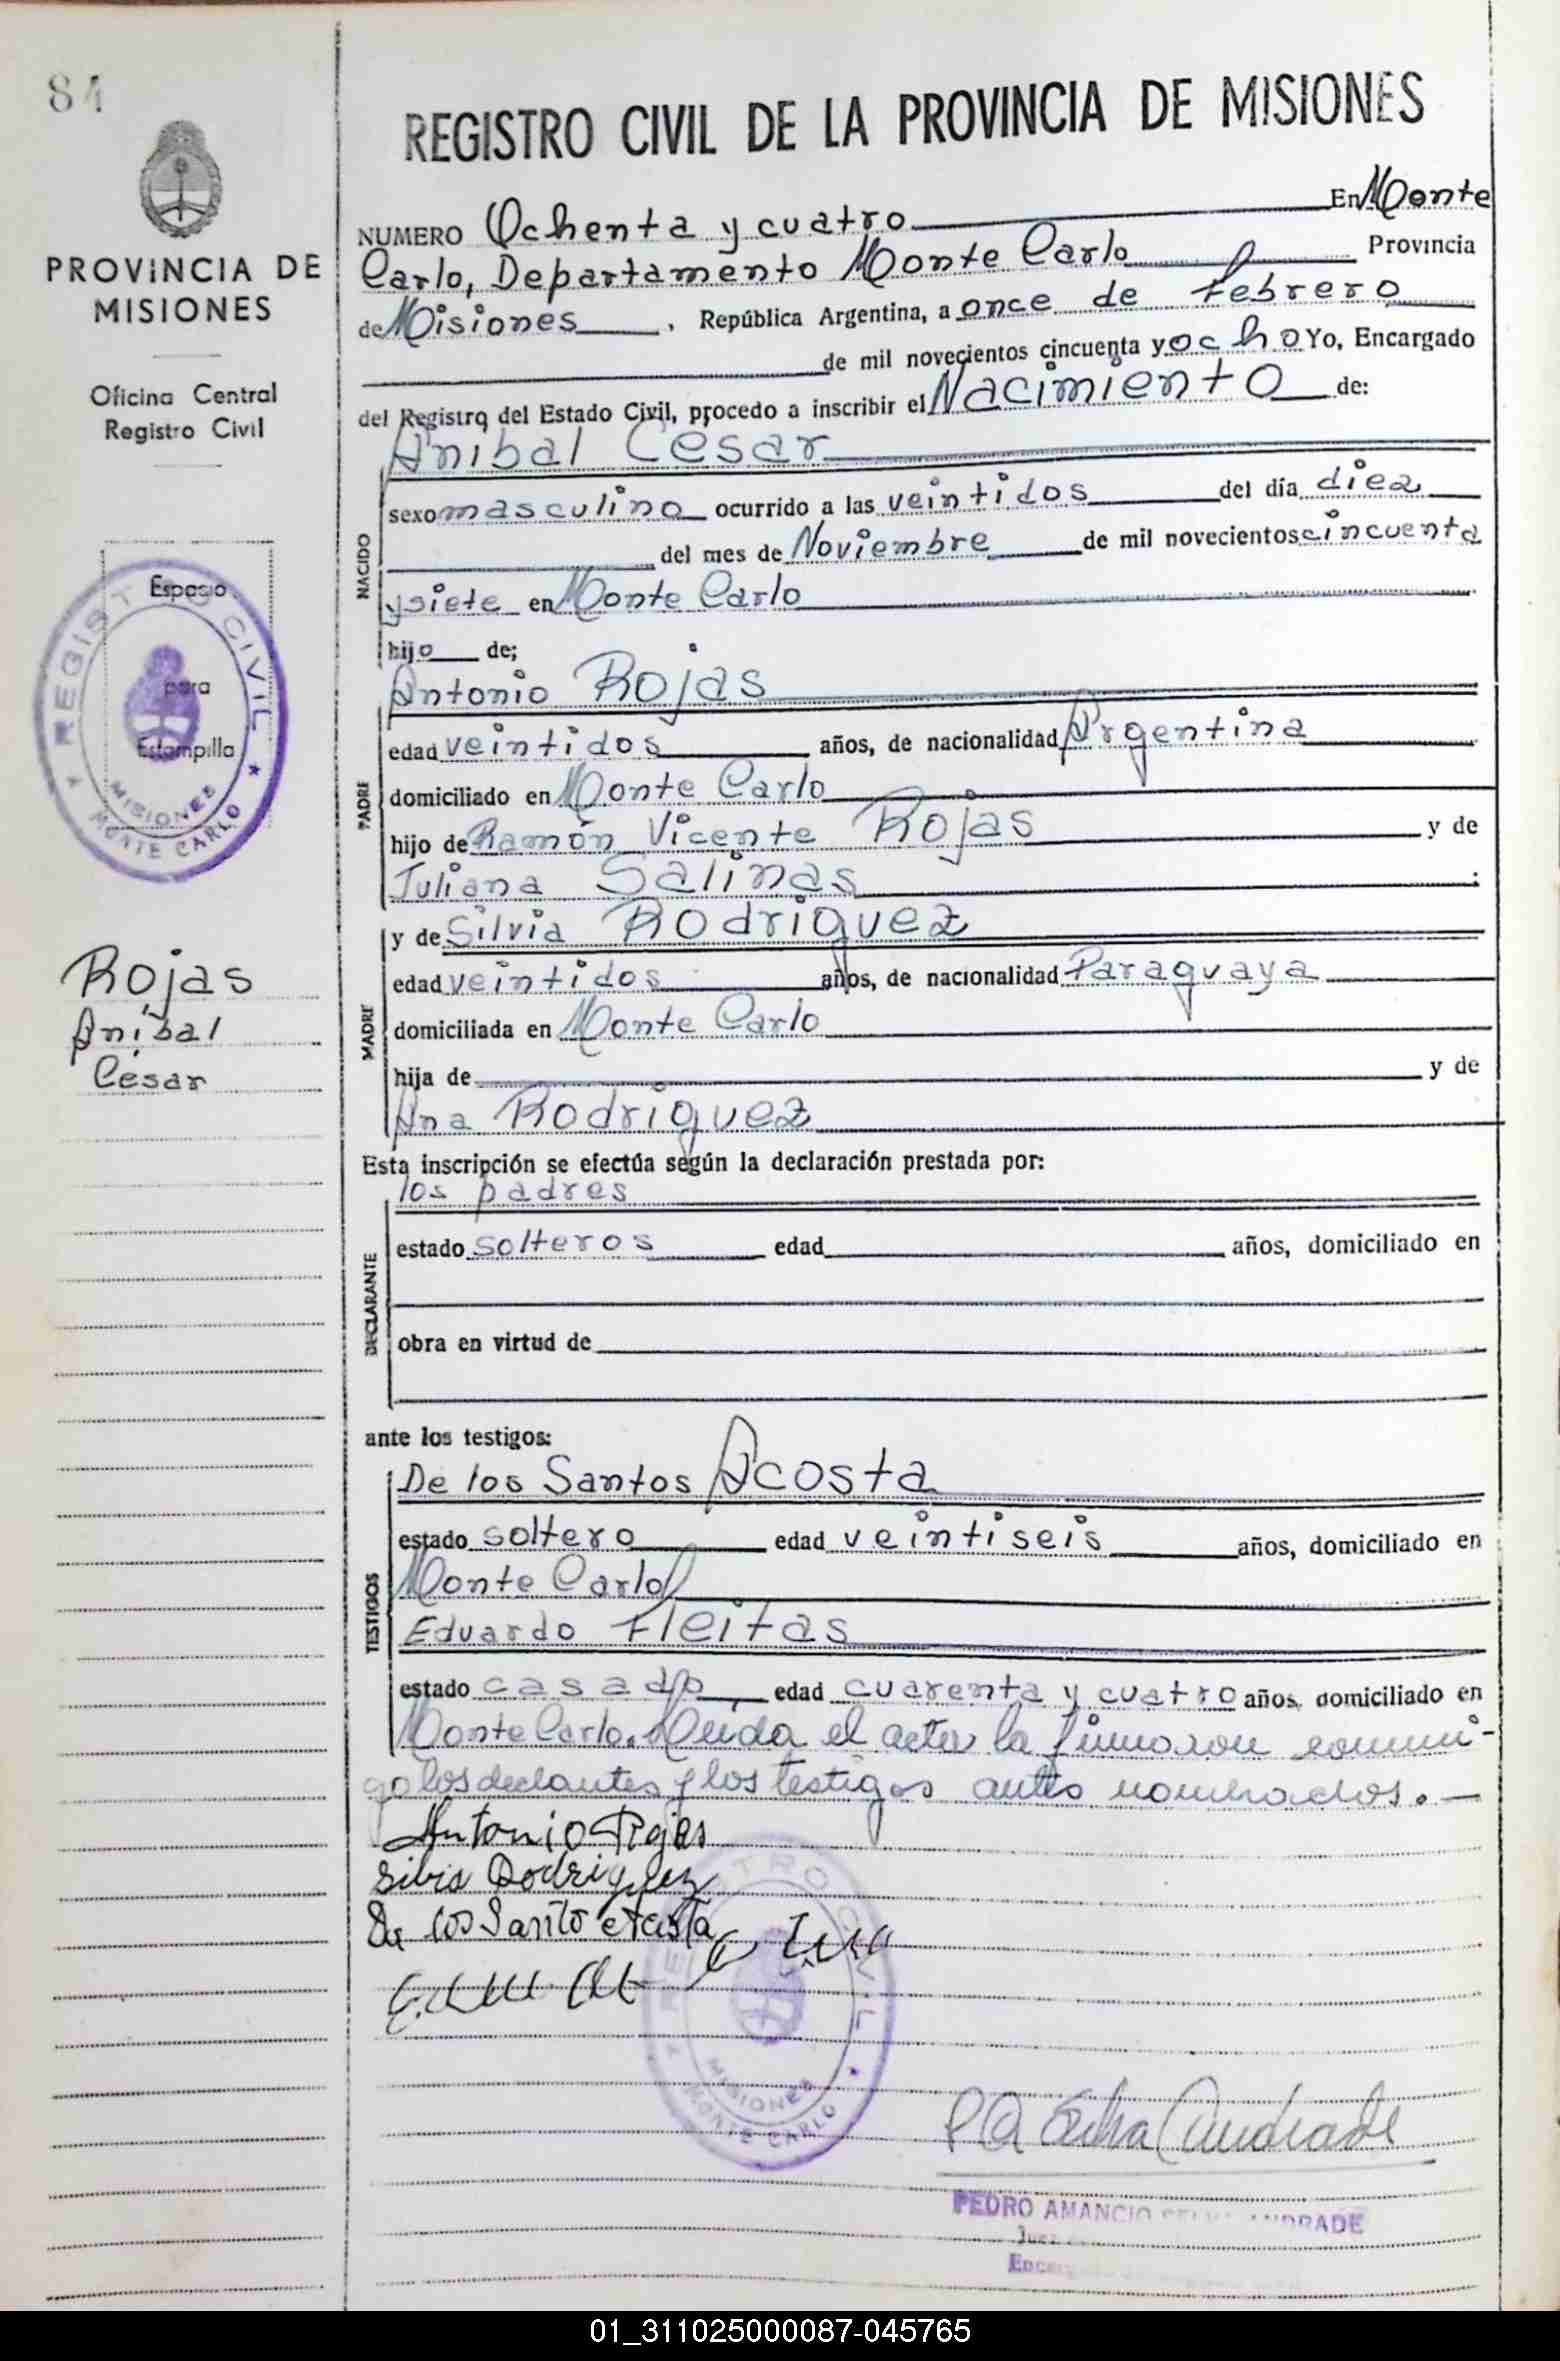 84
PROVINCIA DE
MISIONES
Oficina Central
Registro Civil
Espacio
para
Estampilla
REGISTRO CIVIL
MISIONES
MONTE CARLO
Rojas
Aníbal
César
REGISTRO CIVIL DE LA PROVINCIA DE MISIONES
NUMERO Ochenta y cuatro En Monte
Carlo, Departamento Monte Carlo Provincia
de Misiones , República Argentina, a once de febrero
de mil novecientos cincuenta y ocho Yo, Encargado
del Registro del Estado Civil, procedo a inscribir el Nacimiento de:
Anibal Cesar
NACIDO
sexo masculino ocurrido a las veintidos del día diez
del mes de Noviembre de mil novecientos cincuenta
y siete en Monte Carlo
hijo de;
Antonio Rojas
PADRE
edad veintidos años, de nacionalidad Argentina
domiciliado en Monte Carlo
hijo de Ramón Vicente Rojas y de
Juliana Salinas ;
y de Silvia Rodriguez
MADRE
edad veintidos años, de nacionalidad Paraguaya
domiciliada en Monte Carlo
hija de y de
Ana Rodriguez
Esta inscripción se efectúa según la declaración prestada por:
los padres
DECLARANTE
estado solteros edad años, domiciliado en
obra en virtud de
ante los testigos:
De los Santos Acosta
TESTIGOS
estado soltero edad veintiseis años, domiciliado en
Monte Carlo
Eduardo Fleitas
estado casado, edad cuarenta y cuatro años, domiciliado en
Monte Carlo. Leída el acta la firmaron conmi-
go los declantes y los testigos antes nombrados.—
Antonio Rojas
Silvia Rodriguez
De los Santo Acosta
REGISTRO CIVIL
MISIONES
MONTE CARLO
Andrade
PEDRO AMANCIO ANDRADE
Juez
01_311025000087-045765